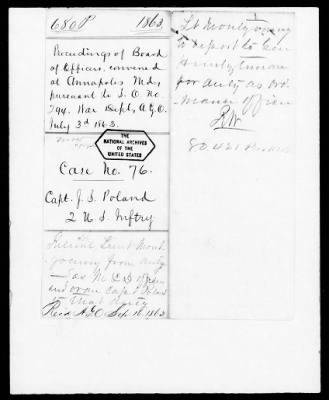 686 P 1863
Proceedings of Board
of Officers, convened
at Annapolis Md,
pursuant to S. O. No.
294. War Dept, A.G.O.
July 3d 1863.
THE
NATIONAL ARCHIVES
OF THE
UNITED STATES
Case No. 76.
Capt. J. S. Poland
2 U S Inftry
Relieve Lieut Mont-
gomery from duty
as M. C. D
and order Capt Poland
to that duty
Recd A.G.O Sep 16, 1863
Lt Montgomery
to report to Gen
for duty as Ord-
nance officer